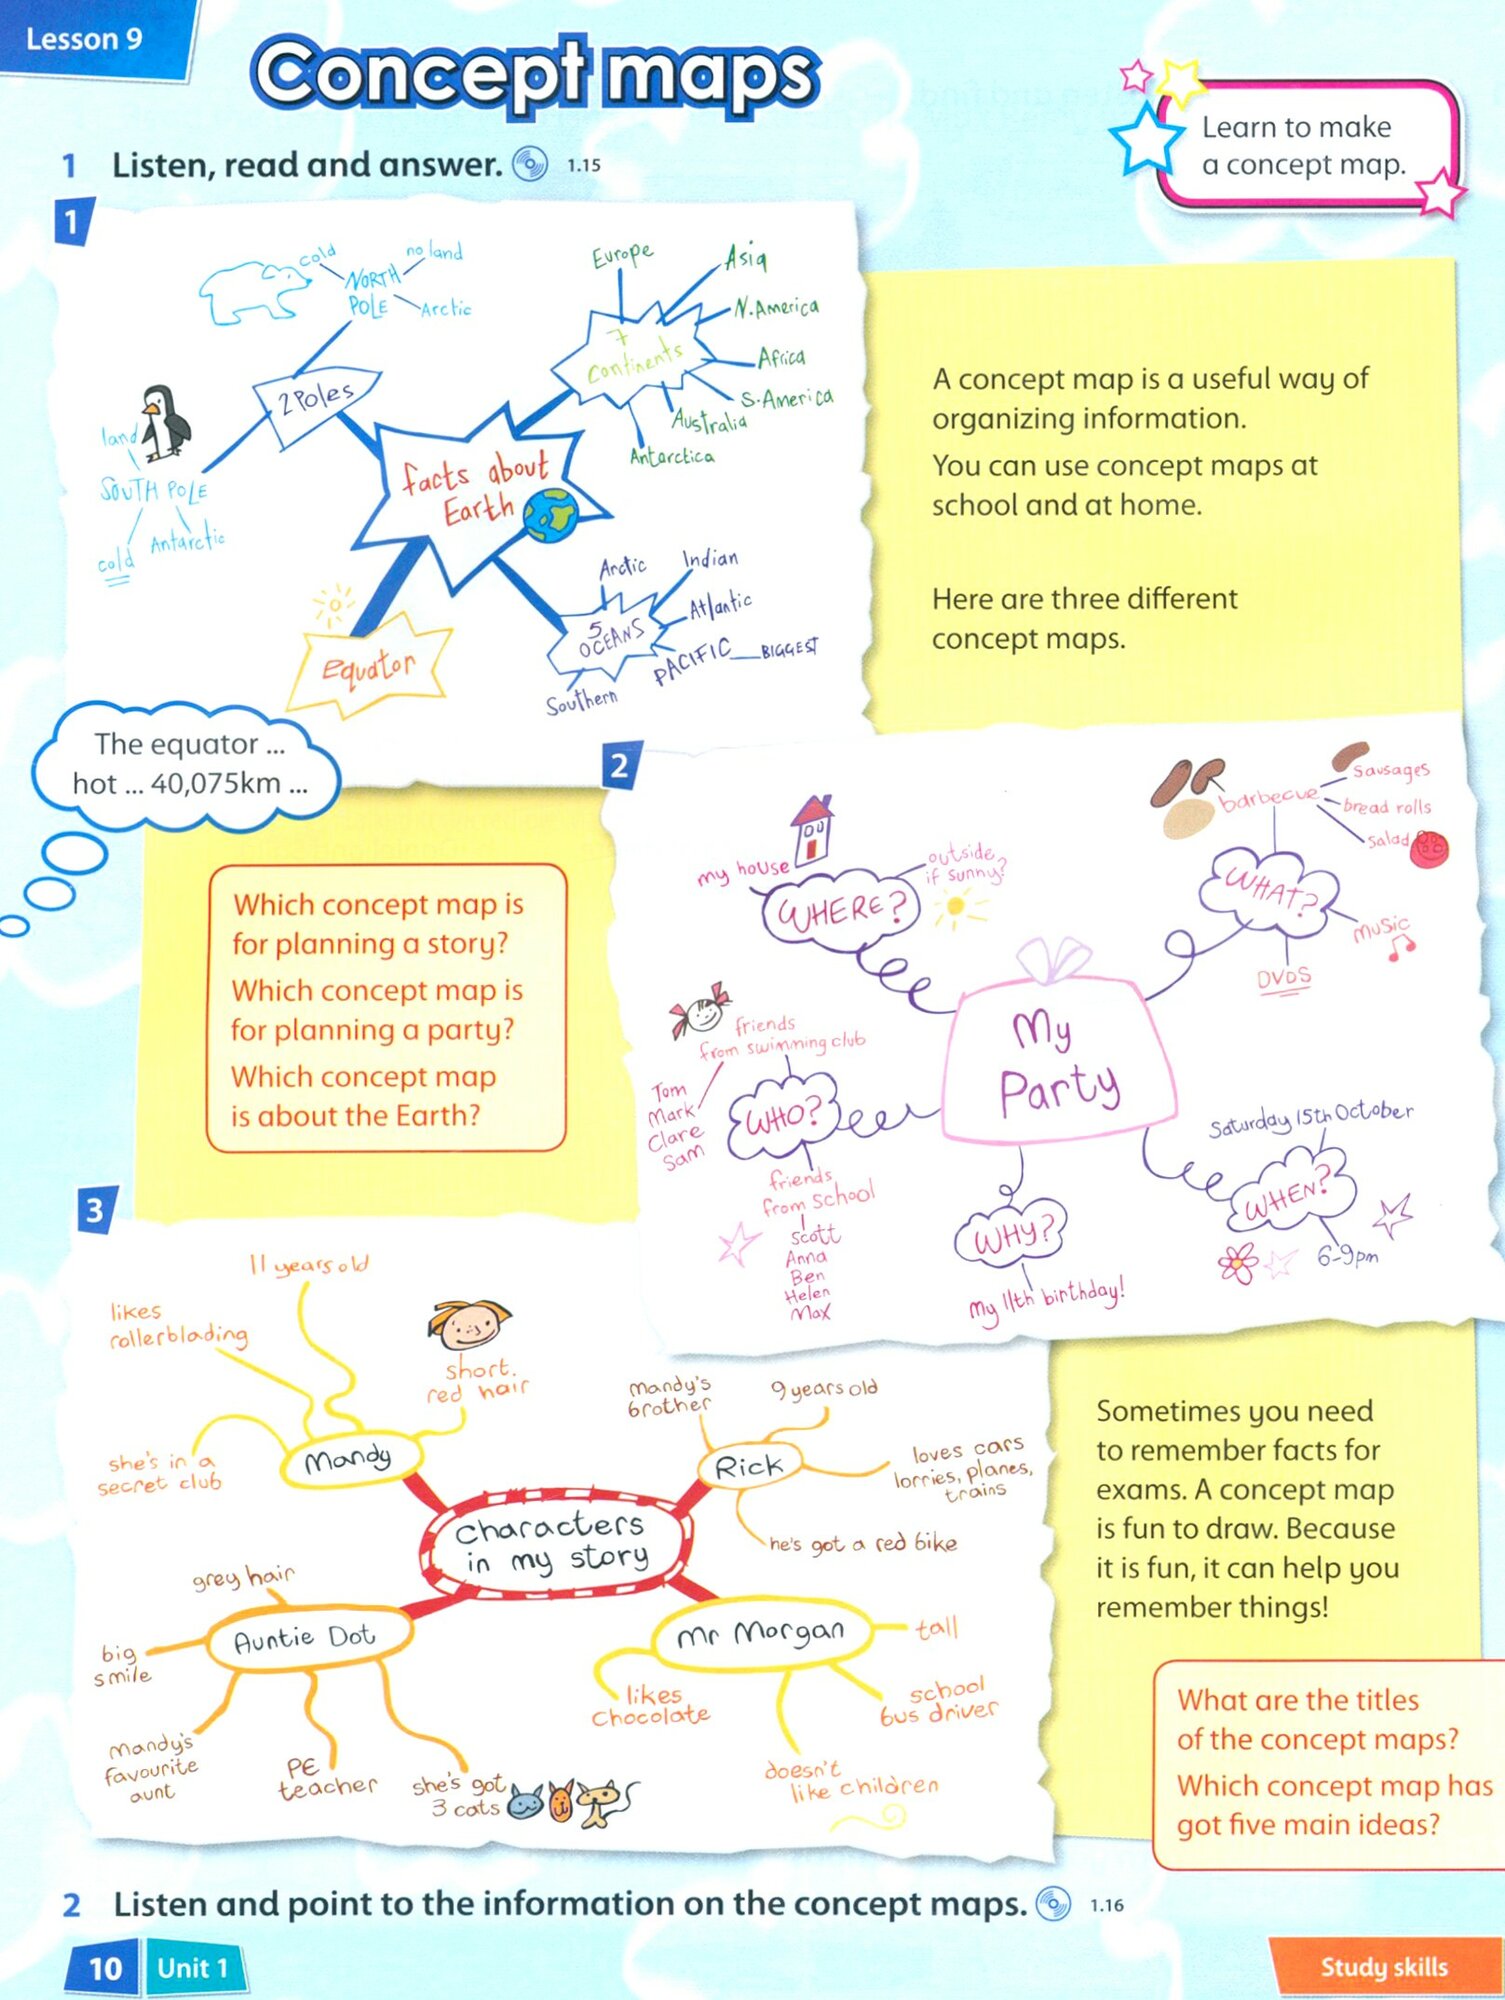 Lesson 9
Concept maps
Learn to make
a concept map.
1 Listen, read and answer. 1.15
1
cold
no land
NORTH
POLE
Arctic
2 Poles
land
SOUTH POLE
cold
Antarctic
facts about
Earth
7
continents
Europe
Asia
N. America
Africa
S. America
Australia
Antarctica
equator
5
OCEANS
Arctic
Indian
Atlantic
PACIFIC BIGGEST
Southern
The equator ...
hot ... 40,075km ...
A concept map is a useful way of
organizing information.
You can use concept maps at
school and at home.
Here are three different
concept maps.
Which concept map is
for planning a story?
Which concept map is
for planning a party?
Which concept map
is about the Earth?
2
my house
outside
if sunny?
WHERE?
barbecue
sausages
bread rolls
salad
WHAT?
music
DVDS
My
Party
friends
from swimming club
Tom
Mark
Clare
Sam
WHO?
friends
from school
Scott
Anna
Ben
Helen
Max
WHY?
My 11th birthday!
Saturday 15th October
WHEN?
6-9pm
3
11 years old
likes
rollerblading
short,
red hair
she's in a
secret club
Mandy
mandy's
brother
9 years old
Rick
loves cars
lorries, planes,
trains
he's got a red bike
Characters
in my story
grey hair
Auntie Dot
big
smile
mandy's
favourite
aunt
PE
teacher
she's got
3 cats
Mr Morgan
tall
likes
chocolate
school
bus driver
doesn't
like children
Sometimes you need
to remember facts for
exams. A concept map
is fun to draw. Because
it is fun, it can help you
remember things!
What are the titles
of the concept maps?
Which concept map has
got five main ideas?
2 Listen and point to the information on the concept maps. 1.16
10 Unit 1
Study skills